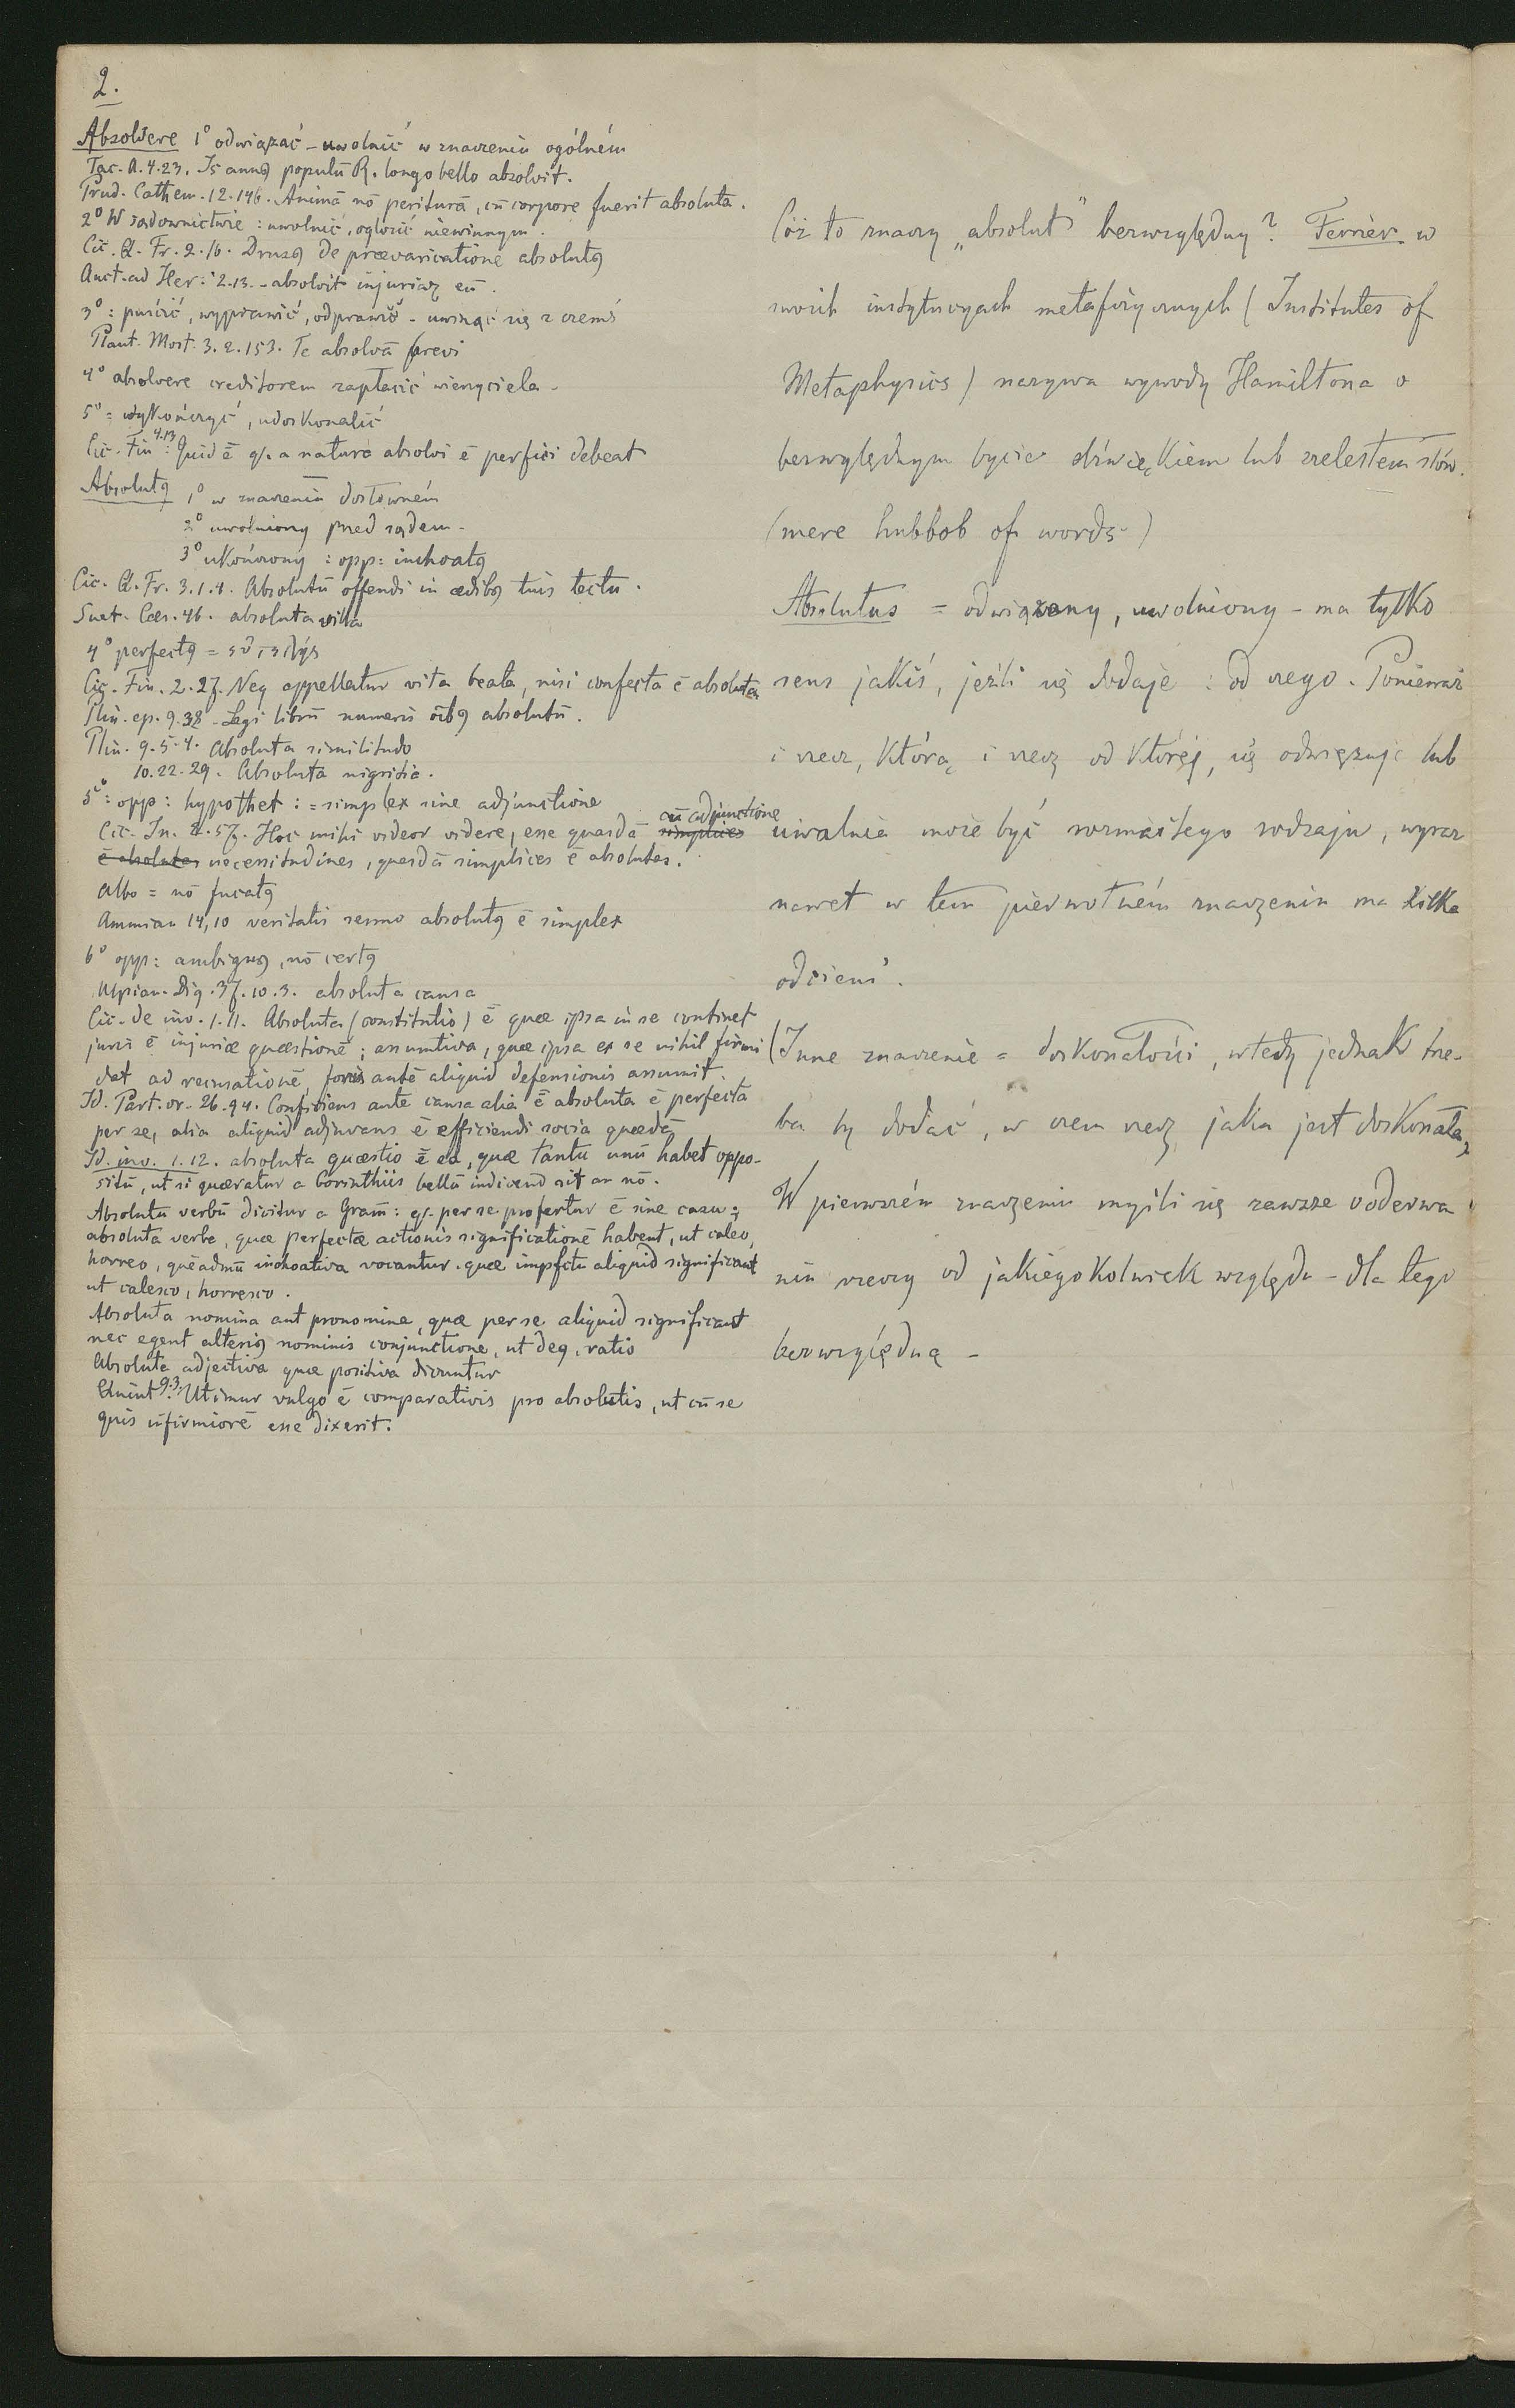 2.
Absolvere 1° odwiązać – uwolnić w znaczeniu ogólném
Tac. A. 4.23. Is annꝯ populū R. longo bello absolvit.
Prud. Cathem. 12.146. Animā nō periturā, cū corpore fuerit absoluta.
2° W sądownictwie : uwolnić, ogłosić niewinnym.
Cic. Q. Fr. 2.16. Drusꝯ de prævaricatione absolutꝯ
Auct. ad Her. 2.13. – absolvit injuriaꝝ eū.
3° : puścić, wyprawić, odprawić – uwinąć się z czemś
Plaut. Most. 3.2.153. Te absolvā brevi
4° absolvere creditorem zapłacić wierzyciela –
5° = wykończyć, udoskonalić
Cic. Fin 4.13. Quid ē qꝫ. a natura absolvi ē perfici debeat
Absolutꝯ 1° w znaczeniu dosłowném
2° uwolniony przed sądem –
3° ukończony : opp: inchoatꝯ
Cic. Q. Fr. 3.1.1. Absolutū offendi in ædibꝯ tuis tectū.
Suet. Cæs. 46. absoluta villa
4° perfectꝯ =
Cic. Fin. 2.27. Neq appellatur vita beata, nisi confecta ē absoluta
Plin. ep. 9.38 – Legi librū numeris ōibꝯ absolutū.
Plin. 9.5.4. Absoluta similitudo
10.22.29. Absoluta nigritia.
5° : opp: hypothet : = simplex sine adjunctione
Cic. In. 2.57. Hoc mihi videor videre, esse quasdā simplices cū adjunctione
ē absolutas necessitudines, quasdā simplices ē absolutas.
Albo = nō fucatꝯ
Ammian 14,10 veritatis sermo absolutꝯ ē simplex
6° opp: ambiguꝯ, nō certꝯ
Ulpian. Dig. 37.10.3. absoluta causa
Cic. de inv. 1.11. Absoluta (constitutio) ē quæ ipsa in se continet
juris ē injuriæ quæstionē ; assumtiva, quæ ipsa ex se nihil firmi
dat ad recusationē, foris autē aliquid defensionis assumit.
Id. Part. or. 26.94. Conficiens autē causa alia ē absoluta ē perfecta
per se, alia aliquid adjuvans ē efficiendi socia quædā
Id. inv. 1.12. absoluta quæstio ē ea, quæ tantū unū habet oppo-
sitū, ut si quæratur a Corinthiis bellū indicend sit an nō.
Absolutū verbū dicitur a Gram̄ : qꝫ. per se profertur ē sine casu ;
absoluta verba, quæ perfectæ actionis significationē habent, ut caleo,
horreo, quēadmū inchoativa vocantur, quæ impfctū aliquid significant
ut calesco, horresco.
Absoluta nomina aut pronomina, quæ per se aliquid significant
nec egent alteriꝯ nominis conjunctione, ut deꝯ, ratio
Absoluta adjectiva quæ positiva dicuntur
Quint 9.3. Utimur vulgo ē comparativis pro absolutis, ut cū se
quis infirmiorē esse dixerit.
Cóż to znaczy „absolut” bezwzględny? Ferrier w
swoich instytucyach metafizycznych (Institutes of
Metaphysics) nazywa wywody Hamiltona o
bezwględnym bycie dźwiękiem lub szelestem słów.
(mere hubbob of words –)
Absolutus = odwiązany, uwolniony – ma tylko
sens jakiś, jeźli się dodaje : od czego. Ponieważ
i rzecz, którą i rzecz od któréj, się odwięzuje lub
uwalnia może być rozmaitego rodzaju, wyraz
nawet w tem pierwotném znaczeniu ma kilka
odcieni.
(Inne znaczenie = doskonałości, wtedy jednak trze-
ba by dodać, w czem rzecz jaka jest doskonałą)
W pierwszém znaczeniu myśli się zawsze o oderwa
niu rzeczy od jakiegokolwiek względu – dla tego
bezwzględną –